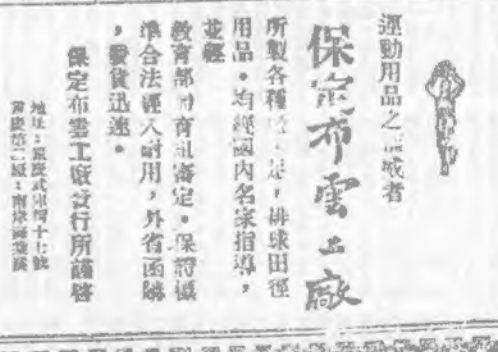 運動用品之權威者
保定布雲工廠
所製各種足，排球田徑
用品。均經國內名家指導，
並經
教育部體育組審定。保證標
準合法經久耐用，外省函購
，發貨迅速。
保定布雲工廠發行所謹啓
地址：重慶武庫街十七號
重慶第二廠：南岸海棠溪